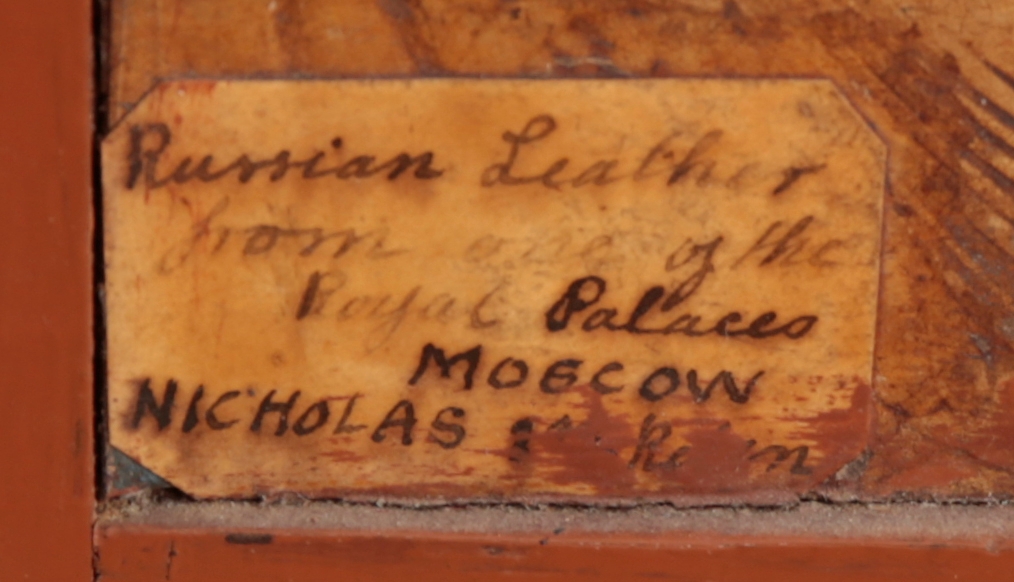 Russian Leather
from one of the
Royal Palaces
MOSCOW
NICHOLAS